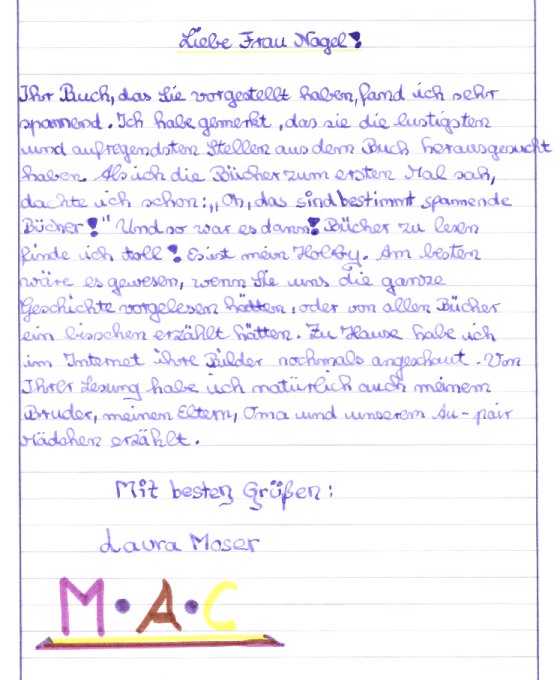 Liebe Frau Nagel!
Ihr Buch, das Sie vorgestellt haben, fand ich sehr
spannend. Ich habe gemerkt, das sie die lustigsten
und aufregendsten Stellen aus dem Buch herausgesucht
haben. Als ich die Bücher zum ersten Mal sah,
dachte ich schon: „Oh, das sind bestimmt spannende
Bücher!" Und so war es dann! Bücher zu lesen
finde ich toll! Es ist mein Hobby. Am besten
wäre es gewesen, wenn Sie uns die ganze
Geschichte vorgelesen hätten, oder von allen Bücher
ein bisschen erzählt hätten. Zu Hause habe ich
im Internet ihre Bilder nochmals angeschaut. Von
Ihrer Lesung habe ich natürlich auch meinem
Bruder, meinen Eltern, Oma und unserem Au-pair
Mädchen erzählt.
Mit besten Grüßen:
Laura Moser
M•A•C